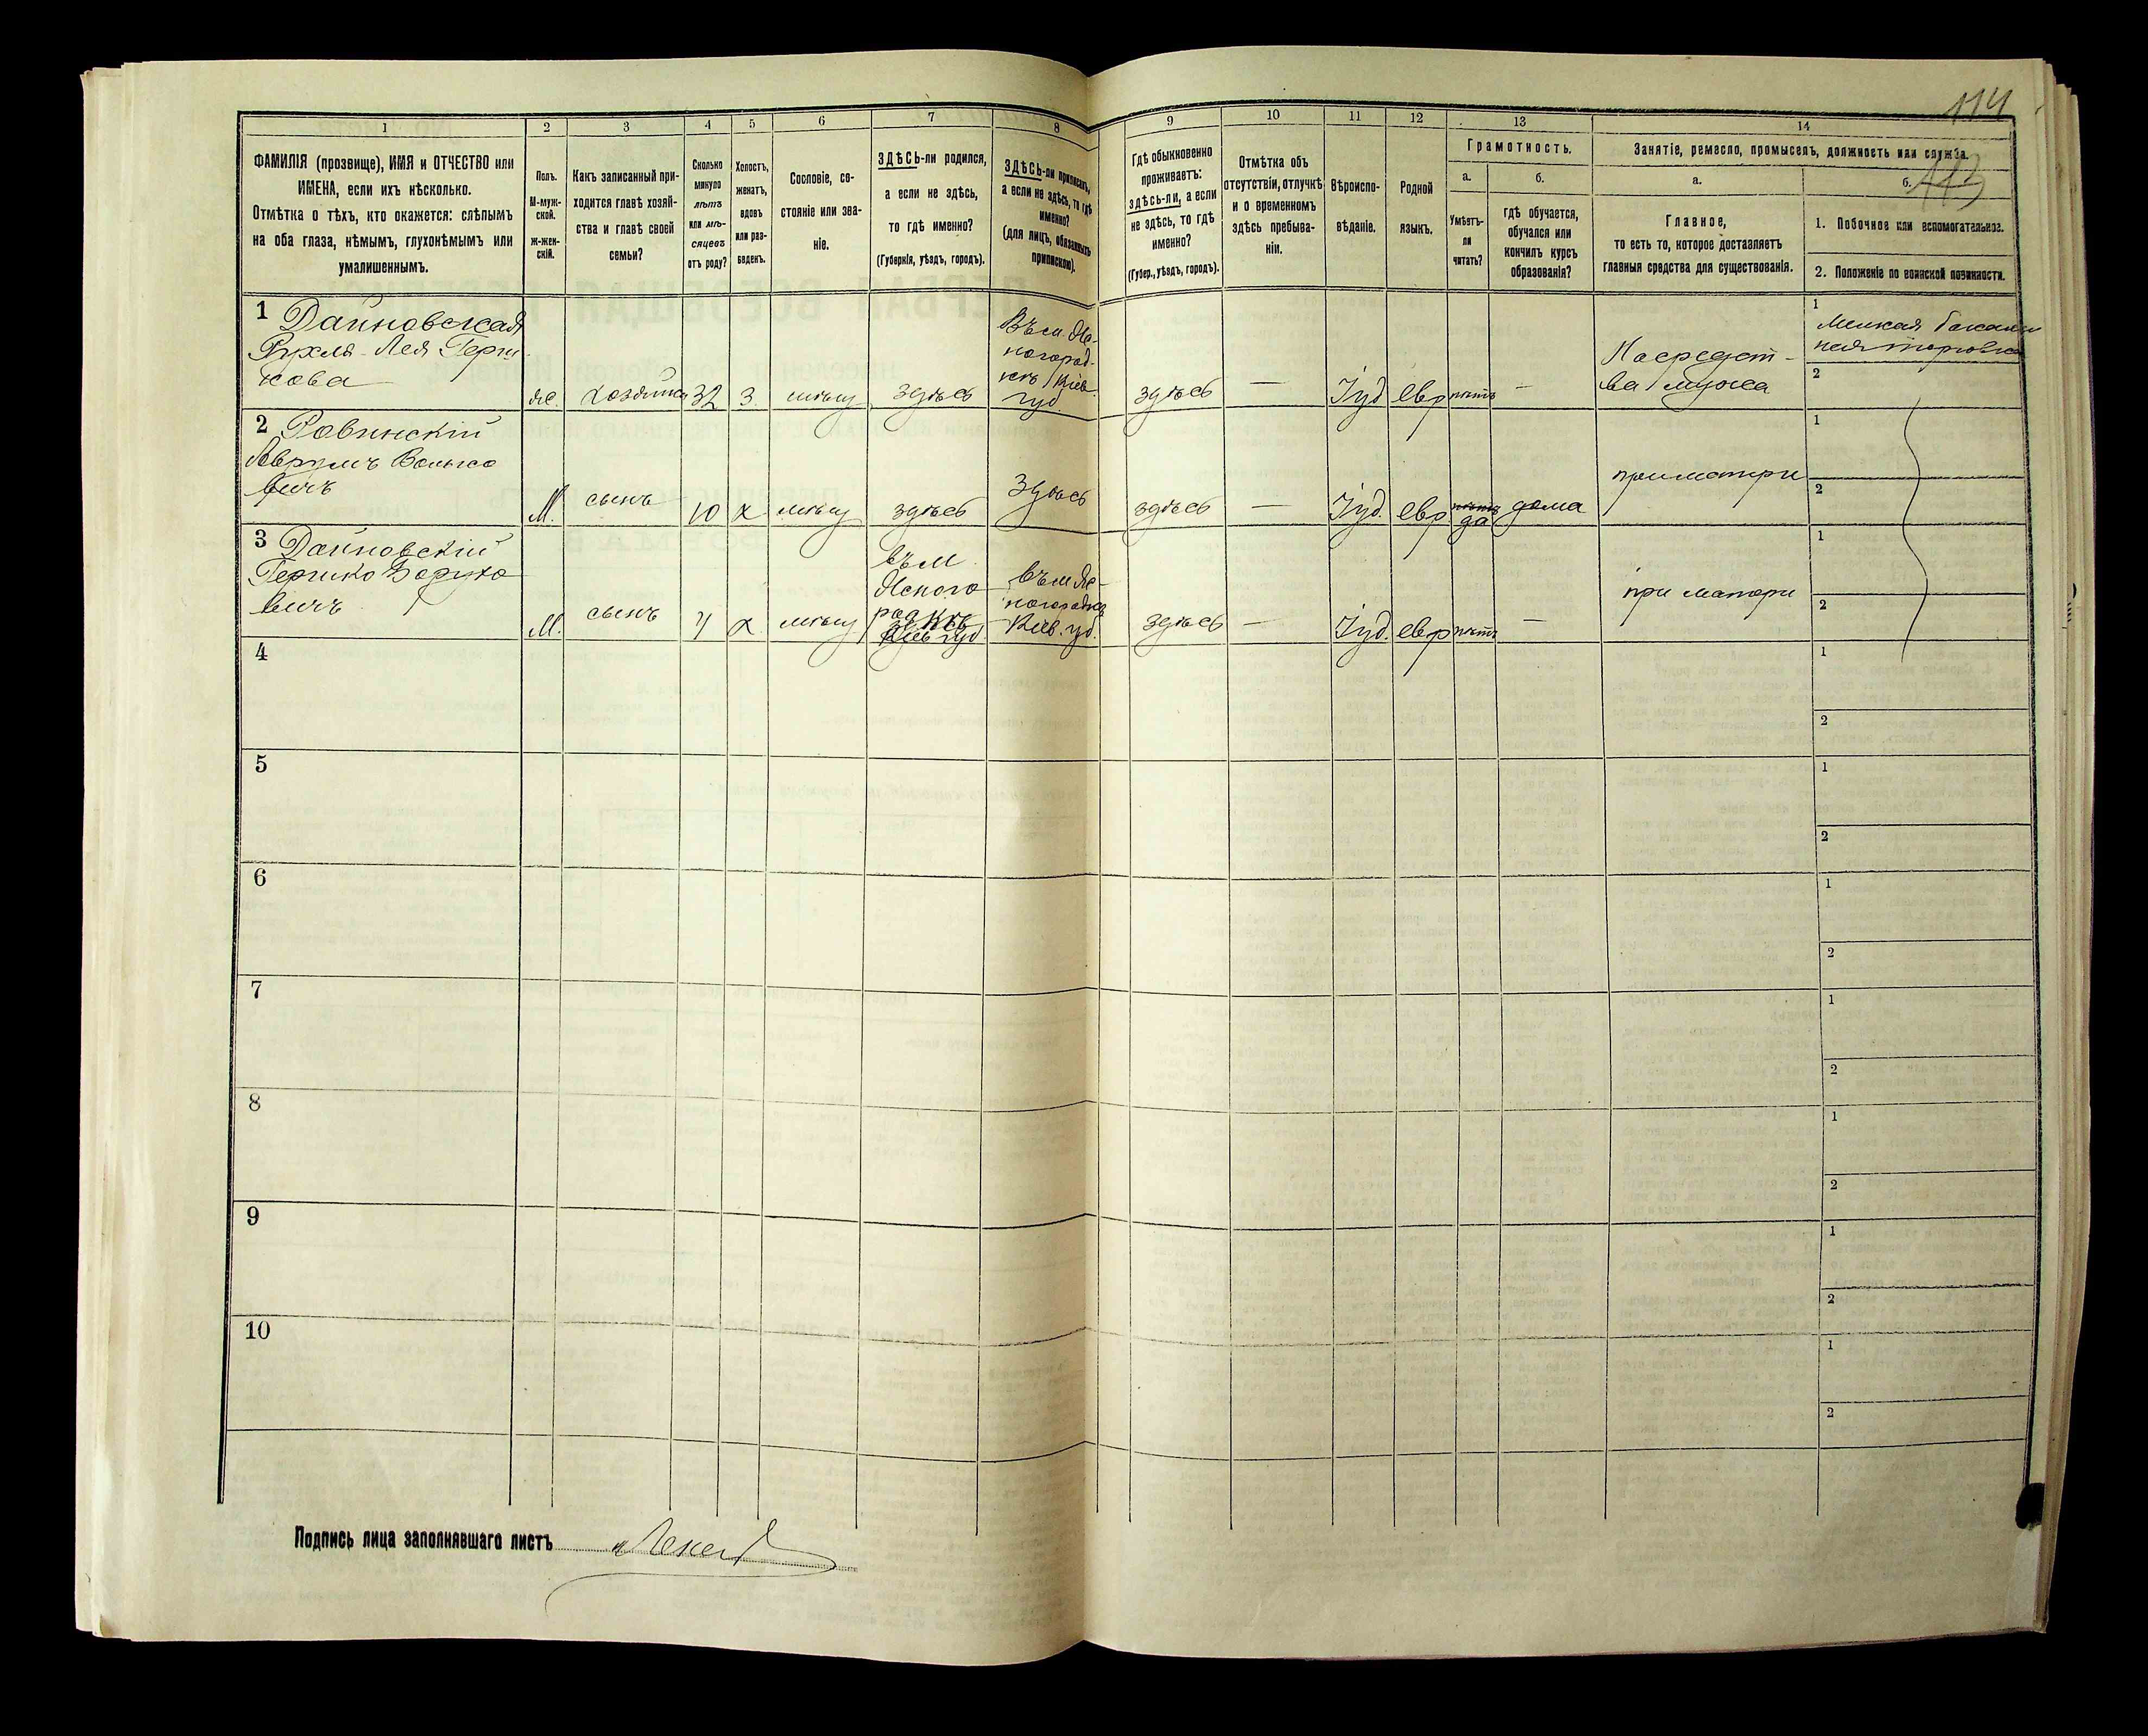 114
113
1
2
3
4
5
6
7
8
9
10
11
12
13
14
ФАМИЛІЯ (прозвище), ИМЯ и ОТЧЕСТВО или
ИМЕНА, если ихъ нѣсколько.
Отмѣтка о тѣхъ, кто окажется: слѣпымъ
на оба глаза, нѣмымъ, глухонѣмымъ или
умалишеннымъ.
Полъ.
М-муж-
ской.
Ж-жен-
скій.
Какъ записанный при-
ходится главѣ хозяй-
ства и главѣ своей
семьи?
Сколько
минуло
лѣтъ
или мѣ-
сяцевъ
отъ роду?
Холостъ,
женатъ,
вдовъ
или раз-
веденъ.
Сословіе, со-
стояніе или зва-
ніе.
ЗДѢСЬ-ли родился,
а если не здѣсь,
то гдѣ именно?
(Губернія, уѣздъ, городъ).
ЗДѢСЬ-ли приписанъ,
а если не здѣсь, то гдѣ
именно?
(для лицъ, обязанныхъ
припискою).
Гдѣ обыкновенно
проживаетъ:
здѣсь-ли, а если
не здѣсь, то гдѣ
именно?
(Губер., уѣздъ, городъ).
Отмѣтка объ
отсутствіи, отлучкѣ
и о временномъ
здѣсь пребыва-
ніи.
Вѣроиспо-
вѣданіе.
Родной
языкъ.
Грамотность.
а.
Умѣетъ-
ли
читать?
б.
гдѣ обучается,
обучался или
кончилъ курсъ
образованія?
Занятіе, ремесло, промыселъ, должность или служба.
а.
Главное,
то есть то, которое доставляетъ
главныя средства для существованія.
б.
1. Побочное или вспомогательное.
2. Положеніе по воинской повинности.
1 Дайновская
Рухля-Лея Герш
кова
ж.
хозяйка
32
з.
мѣщ
здѣсь
Въ м. Яс-
ногород-
кѣ Кіев.
губ.
здѣсь
—
Іуд
евр
нѣтъ
—
На средст-
ва мужа
1
Мелкая бакалей
ная торговля
2
2 Ровинскій
Аврумъ Волько
вичъ
М.
сынъ
10
х
мѣщ
здѣсь
здѣсь
здѣсь
—
Іуд.
евр
нѣтъ
да
дома
при матери
1
2
3 Дайновскій
Гершко Борухо
вичъ
М.
сынъ
4
х
мѣщ
въ м
Ясного
родкѣ
Кіев губ
въ м Яс-
ногородкѣ
Кіев. губ.
здѣсь
—
Іуд.
евр
нѣтъ
—
при матери
1
2
4
1
2
5
1
2
6
1
2
7
1
2
8
1
2
9
1
2
10
1
2
Подпись лица заполнявшаго листъ